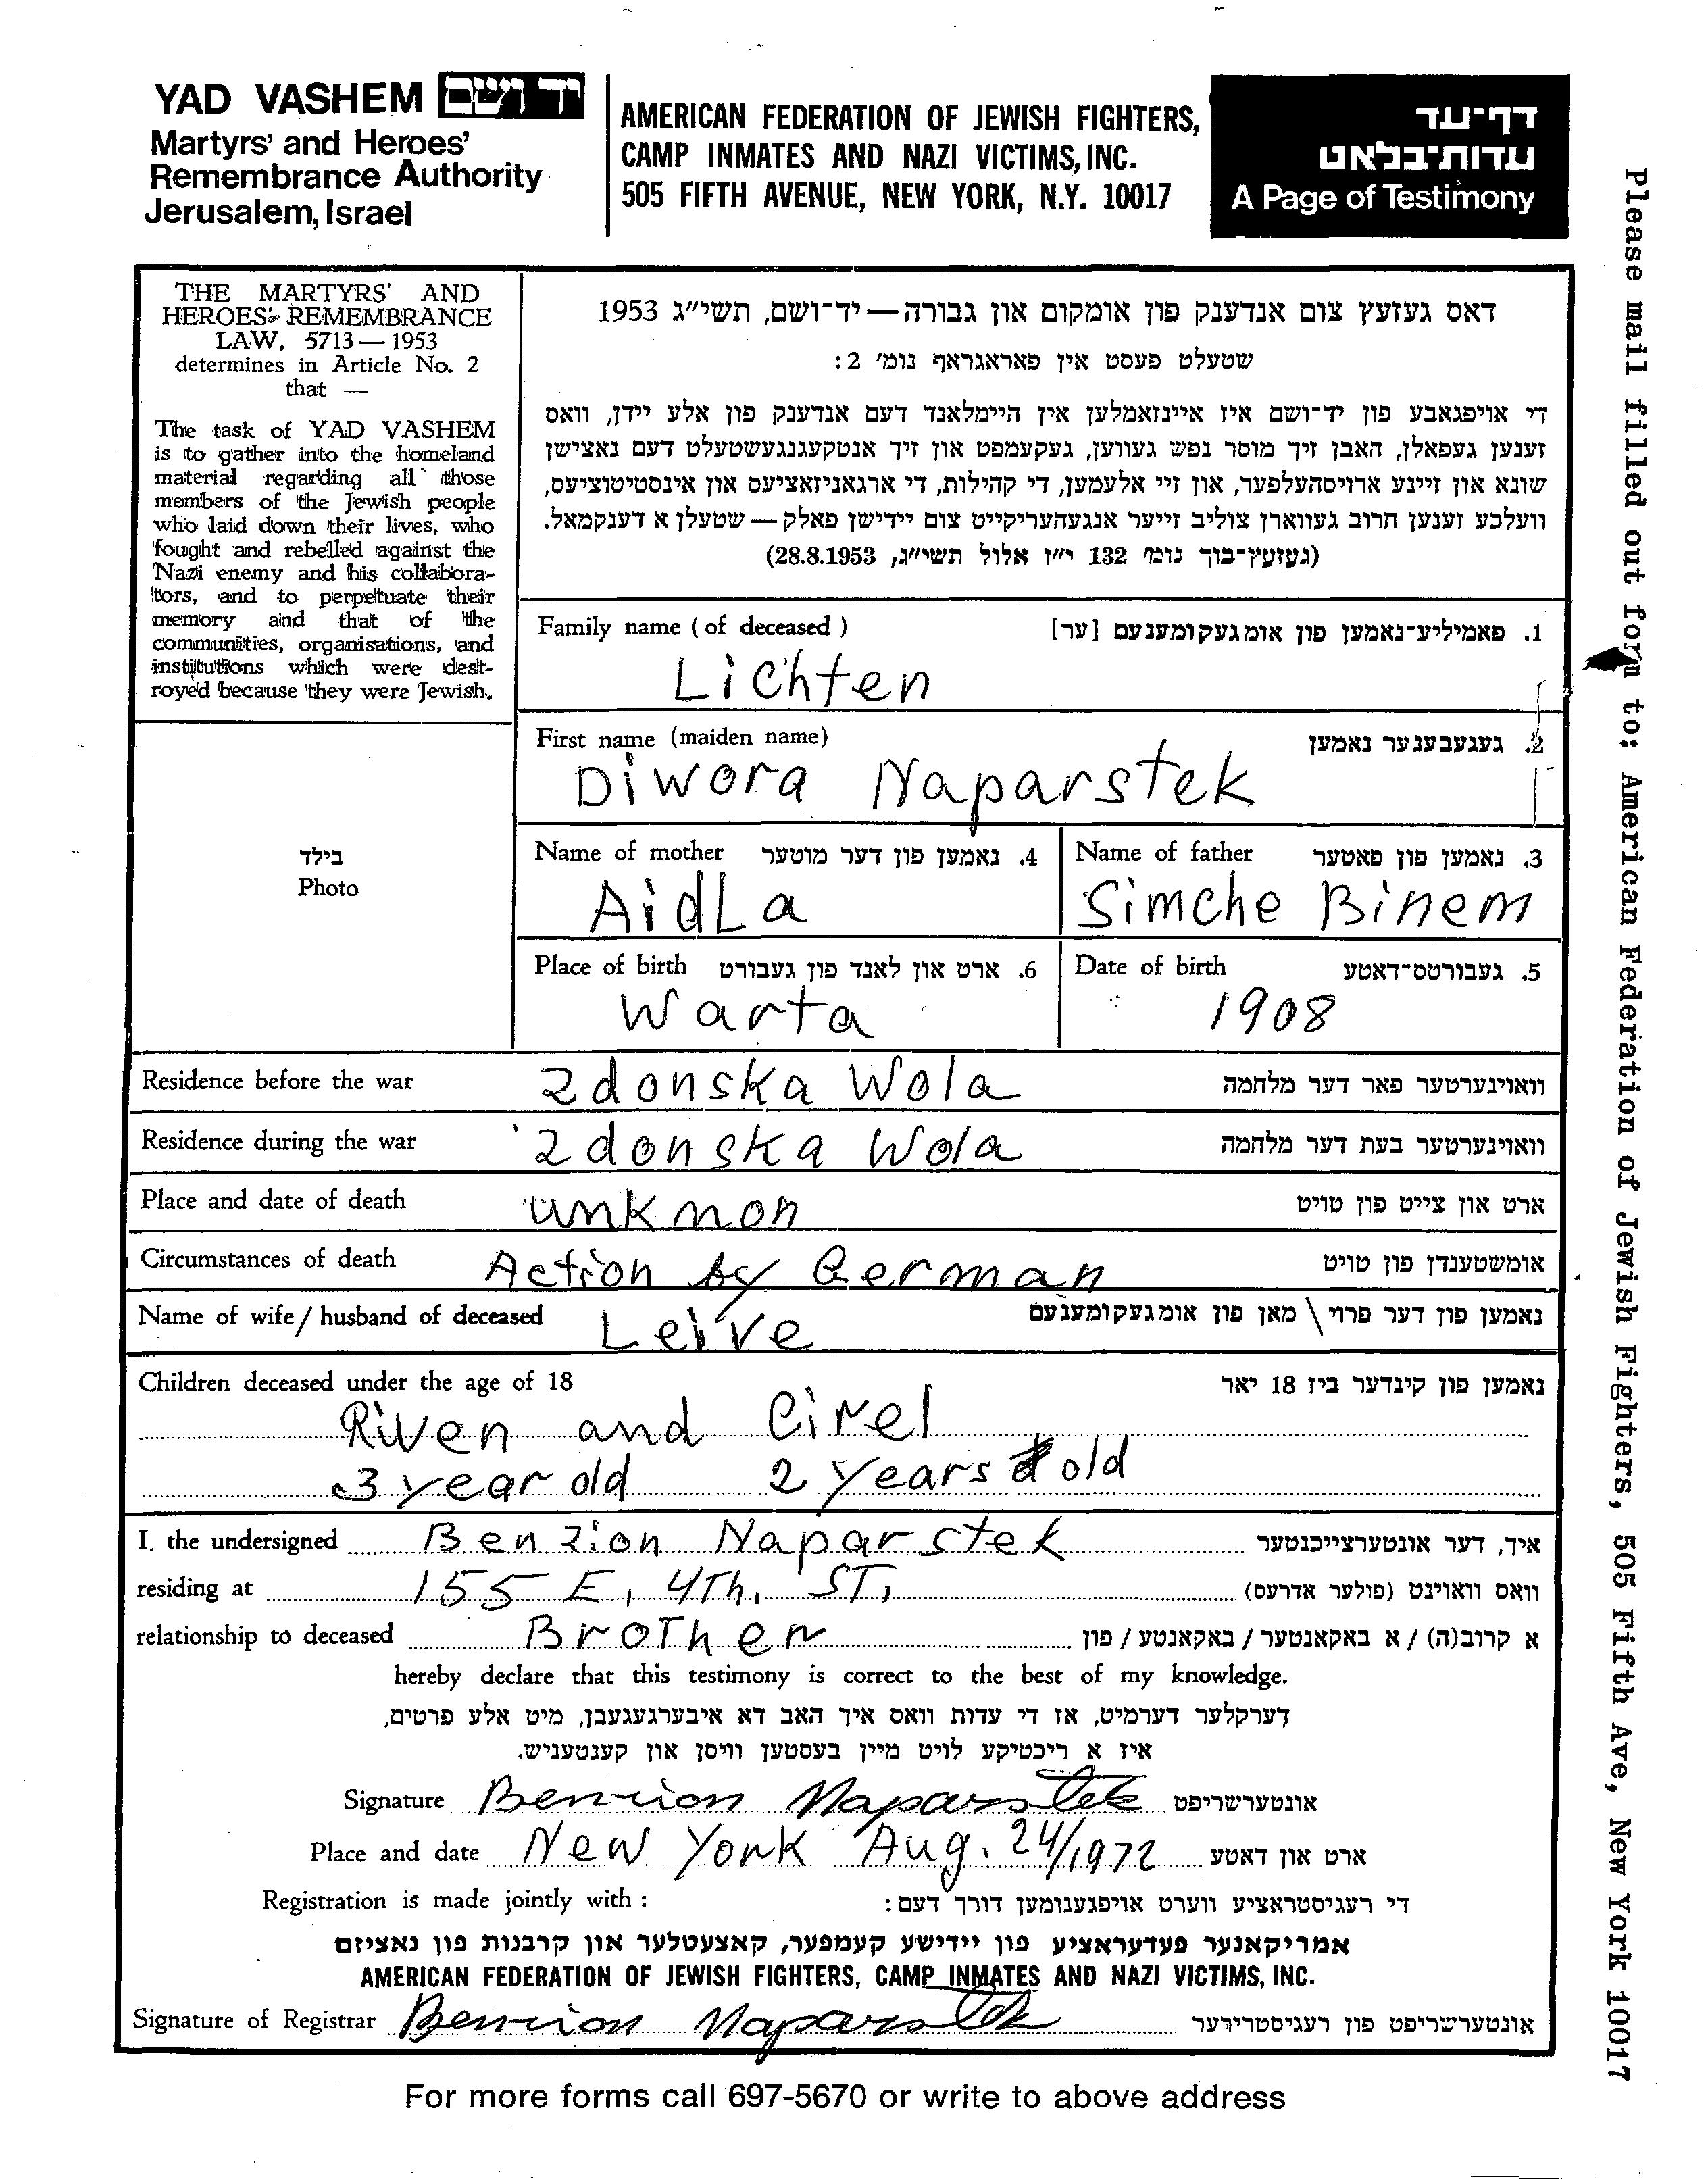 YAD VASHEM יד ושם
Martyrs' and Heroes'
Remembrance Authority
Jerusalem, Israel
AMERICAN FEDERATION OF JEWISH FIGHTERS,
CAMP INMATES AND NAZI VICTIMS, INC.
505 FIFTH AVENUE, NEW YORK, N.Y. 10017
דף־עד
עדות־בלאט
A Page of Testimony
THE MARTYRS' AND
HEROES' REMEMBRANCE
LAW, 5713 — 1953
determines in Article No. 2
that —
The task of YAD VASHEM
is to gather into the homeland
material regarding all those
members of the Jewish people
who laid down their lives, who
fought and rebelled against the
Nazi enemy and his collabora-
tors, and to perpetuate their
memory and that of the
communities, organisations, and
institutions which were dest-
royed because they were Jewish.
דאס געזעץ צום אנדענק פון אומקום און גבורה — יד־ושם, תשי״ג 1953
שטעלט פעסט אין פאראגראף נומ׳ 2:
די אויפגאבע פון יד־ושם איז איינזאמלען אין היימלאנד דעם אנדענק פון אלע יידן, וואס
זענען געפאלן, האבן זיך מוסר נפש געווען, געקעמפט און זיך אנטקעגנגעשטעלט דעם נאצישן
שונא און זיינע ארויסהעלפער, און זיי אלעמען, די קהילות, די ארגאניזאציעס און אינסטיטוציעס,
וועלכע זענען חרוב געווארן צוליב זייער אנגעהעריקייט צום יידישן פאלק — שטעלן א דענקמאל.
(געזעץ־בוך נומ׳ 132 י״ז אלול תשי״ג, 28.8.1953)
Family name (of deceased) 1. פאמיליע־נאמען פון אומגעקומענעם [ער]
Lichten
First name (maiden name) 2. געגעבענער נאמען
Diwora Naparstek
Name of mother 4. נאמען פון דער מוטער
AidLa
Name of father 3. נאמען פון פאטער
Simche Binem
Place of birth 6. ארט און לאנד פון געבורט
Warta
Date of birth 5. געבורטס־דאטע
1908
בילד
Photo
Residence before the war Zdonska Wola וואוינערטער פאר דער מלחמה
Residence during the war Zdonska Wola וואוינערטער בעת דער מלחמה
Place and date of death unknnon ארט און צייט פון טויט
Circumstances of death Action by German אומשטענדן פון טויט
Name of wife / husband of deceased Leive נאמען פון דער פרוי \ מאן פון אומגעקומענעם
Children deceased under the age of 18 נאמען פון קינדער ביז 18 יאר
Riven and Cirel
3 year old 2 years old
I. the undersigned Benzion Naparstek איך, דער אונטערצייכנטער
residing at 155 E, 4Th, ST, וואס וואוינט (פולער אדרעס)
relationship to deceased BroTher א קרוב(ה) / א באקאנטער / באקאנטע / פון
hereby declare that this testimony is correct to the best of my knowledge.
דערקלער דערמיט, אז די עדות וואס איך האב דא איבערגעגעבן, מיט אלע פרטים,
איז א ריכטיקע לויט מיין בעסטען וויסן און קענטעניש.
Signature Benzion Naparstek אונטערשריפט
Place and date New York Aug. 24/1972 ארט און דאטע
Registration is made jointly with : די רעגיסטראציע ווערט אויפגענומען דורך דעם:
אמריקאנער פעדעראציע פון יידישע קעמפער, קאצעטלער און קרבנות פון נאציזם
AMERICAN FEDERATION OF JEWISH FIGHTERS, CAMP INMATES AND NAZI VICTIMS, INC.
Signature of Registrar Benzion Naparstek אונטערשריפט פון רעגיסטרירער
For more forms call 697-5670 or write to above address
Please mail filled out form to: American Federation of Jewish Fighters, 505 Fifth Ave, New York 10017